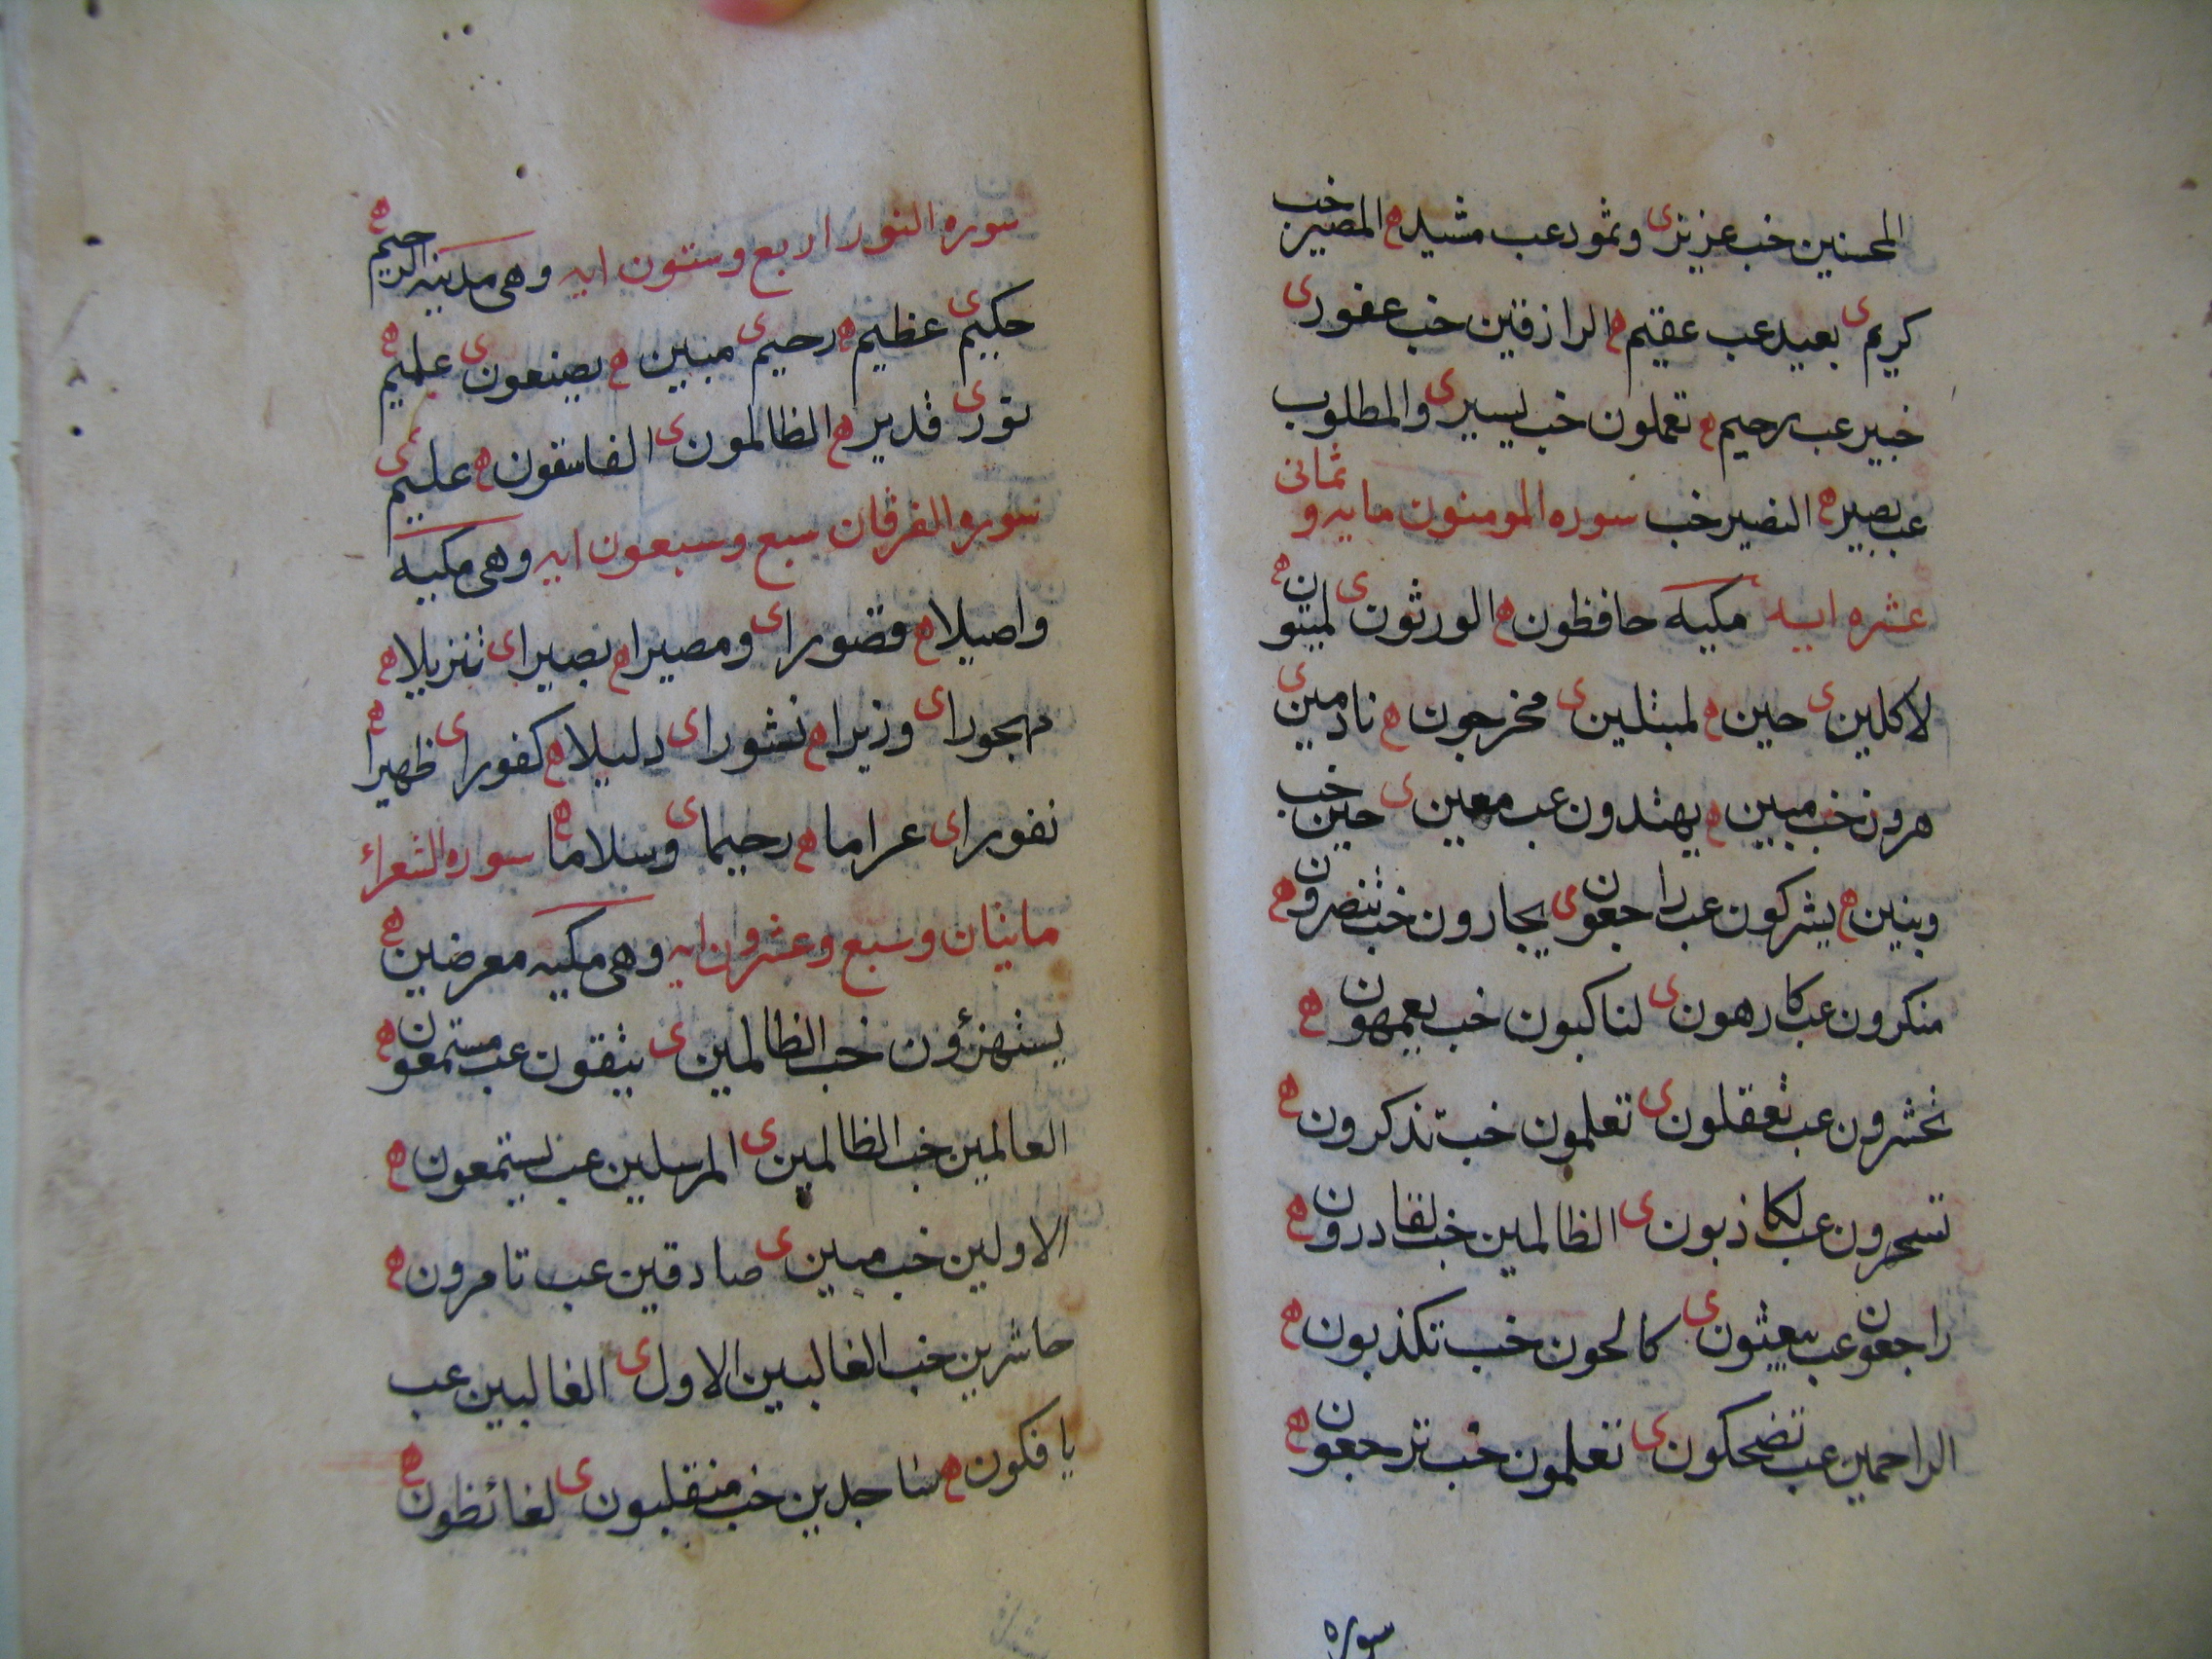 المحسنين خب عزيز ى وثمود عب مشيد ه المصير خب
كريم ى بعيد عب عقيم ه الرازقين خب عفور ى
خبير عب رحيم ه تعملون خب يسير ى والمطلوب
عب بصير ه النصير خب سوره المومنون مايه و ثمانى
عشره ايه مكيه حافظون ه الورثون ى لميتون ه
لاكلين ى حين ه لمبتلين ى مخرجون ه نادمين ى
هرون خب مبين ه يهتدون عب معين ى حين خب
وبنين ه يشركون عب راجعون ى يجارون خب تنصرون ه
منكرون عب كارهون ى لناكبون خب يعمهون ه
تحشرون عب تعقلون ى تعلمون خب تذكرون ه
تسحرون عب لكاذبون ى الظالمين خب لقادرون ه
راجعون عب يبعثون ى كالحون خب تكذبون ه
الراحمين عب تضحكون ى تعلمون خب ترجعون ه
سوره
سوره النور اربع وستون ايه وهى مدنيه الرحيم ه
حكيم ى عظيم ه رحيم ى مبين ه يصنعون ى عليم ه
نور ى قدير ه الظالمون ى الفاسقون ه عليم ى
سوره الفرقان سبع وسبعون ايه وهى مكيه
واصيلا ه قصورا ى ومصيرا ه بصيرا ى تنزيلا ه
مهجورا ى وزيرا ه نشورا ى دليلا ه كفورا ى ظهيرا ه
نفورا ى عراما ه رحيما ى وسلاما ه سوره الشعراء
مايتان وسبع وعشرون ايه وهى مكيه معرضين ه
يستهزؤن خب الظالمين ى يتقون عب مستمعون ه
العالمين خب الظالمين ى المرسلين عب تستمعون ه
الاولين خب مبين ى صادقين عب تامرون ه
حاشرين خب الغالبين الاول ى الغالبين عب
يافكون ه ساجدين خب منقلبون ى لغائظون ه